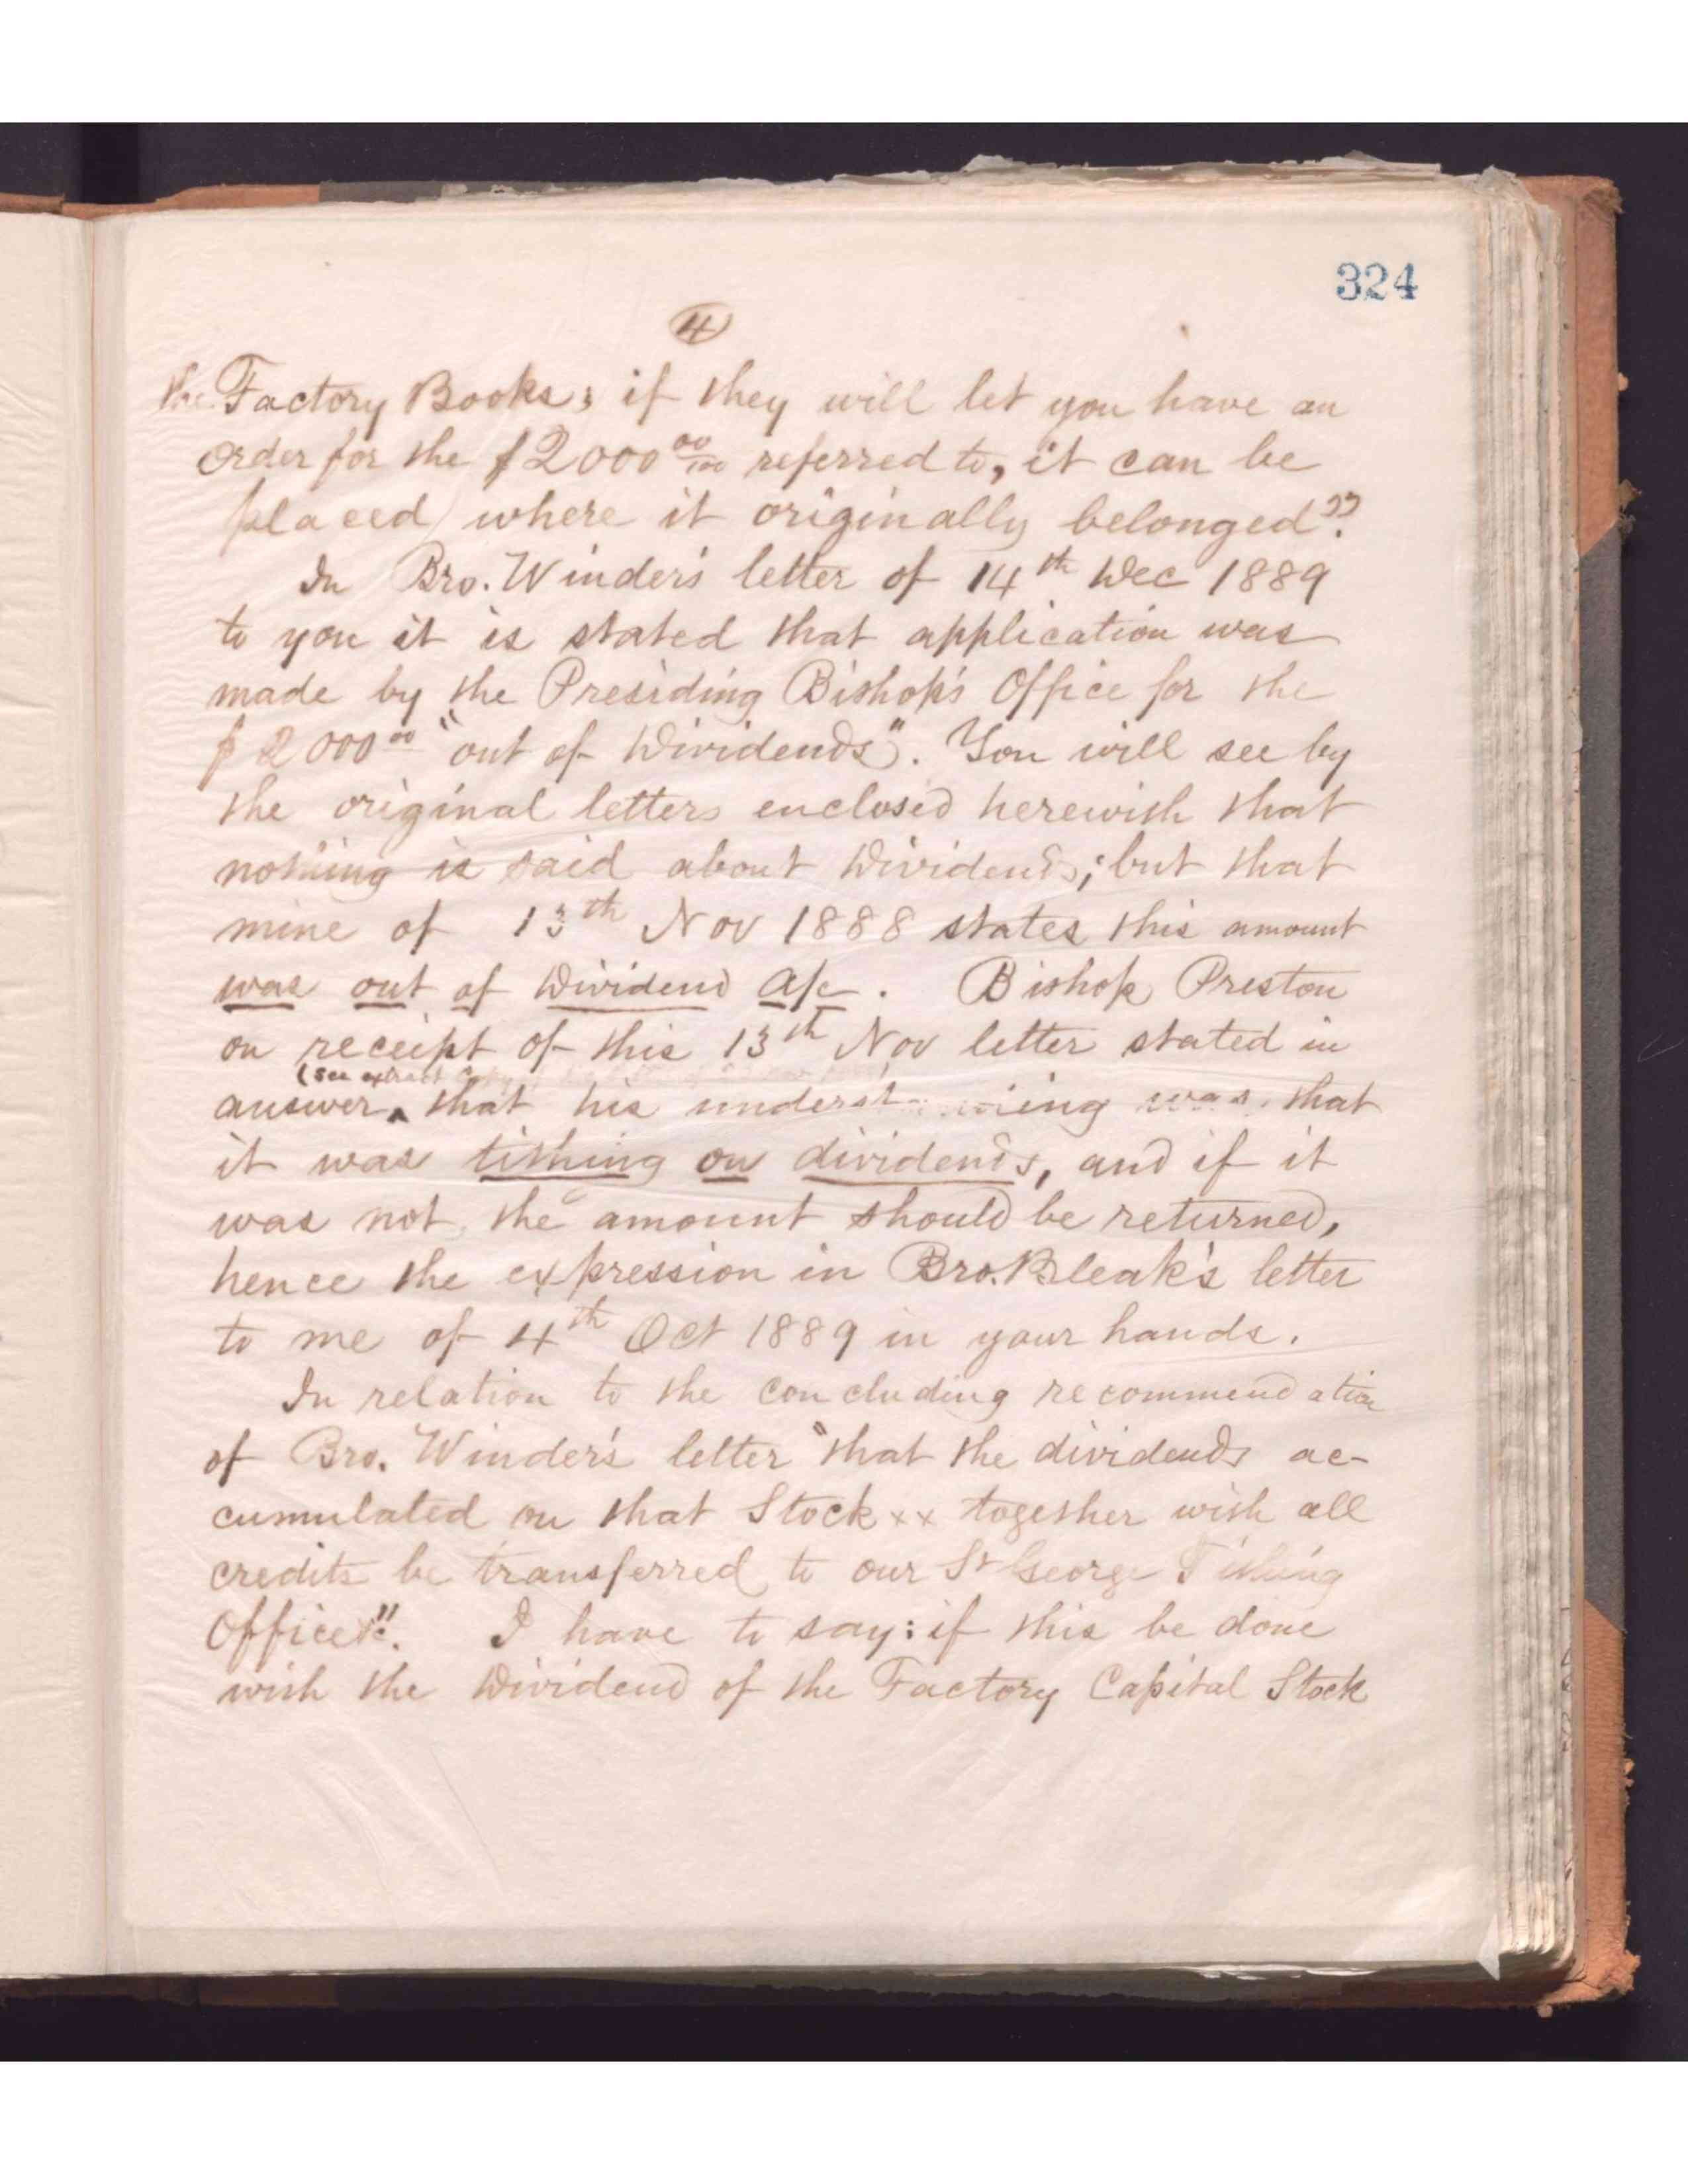 324
4
the Factory Books; if they will let you have an
order for the $2000 00/100 referred to, it can be
placed where it originally belonged".
In Bro. Winder's letter of 14th Dec 1889
to you it is stated that application was
made by the Presiding Bishop's Office for the
$2000 00 "out of Dividends". You will see by
the original letters enclosed herewith that
nothing is said about Dividends; but that
mine of 13th Nov 1888 states this amount
was out of Dividend a/c. Bishop Preston
on receipt of this 13th Nov letter stated in
(see extract
answer that his understanding was that
it was tithing on dividends, and if it
was not, the amount should be returned,
hence the expression in Bro. Bleak's letter
to me of 4th Oct 1889 in your hands.
In relation to the concluding recommendation
of Bro. Winder's letter "that the dividends ac-
cumulated on that Stock xx together with all
credits be transferred to our St George Tithing
Office". I have to say: if this be done
with the Dividend of the Factory Capital Stock